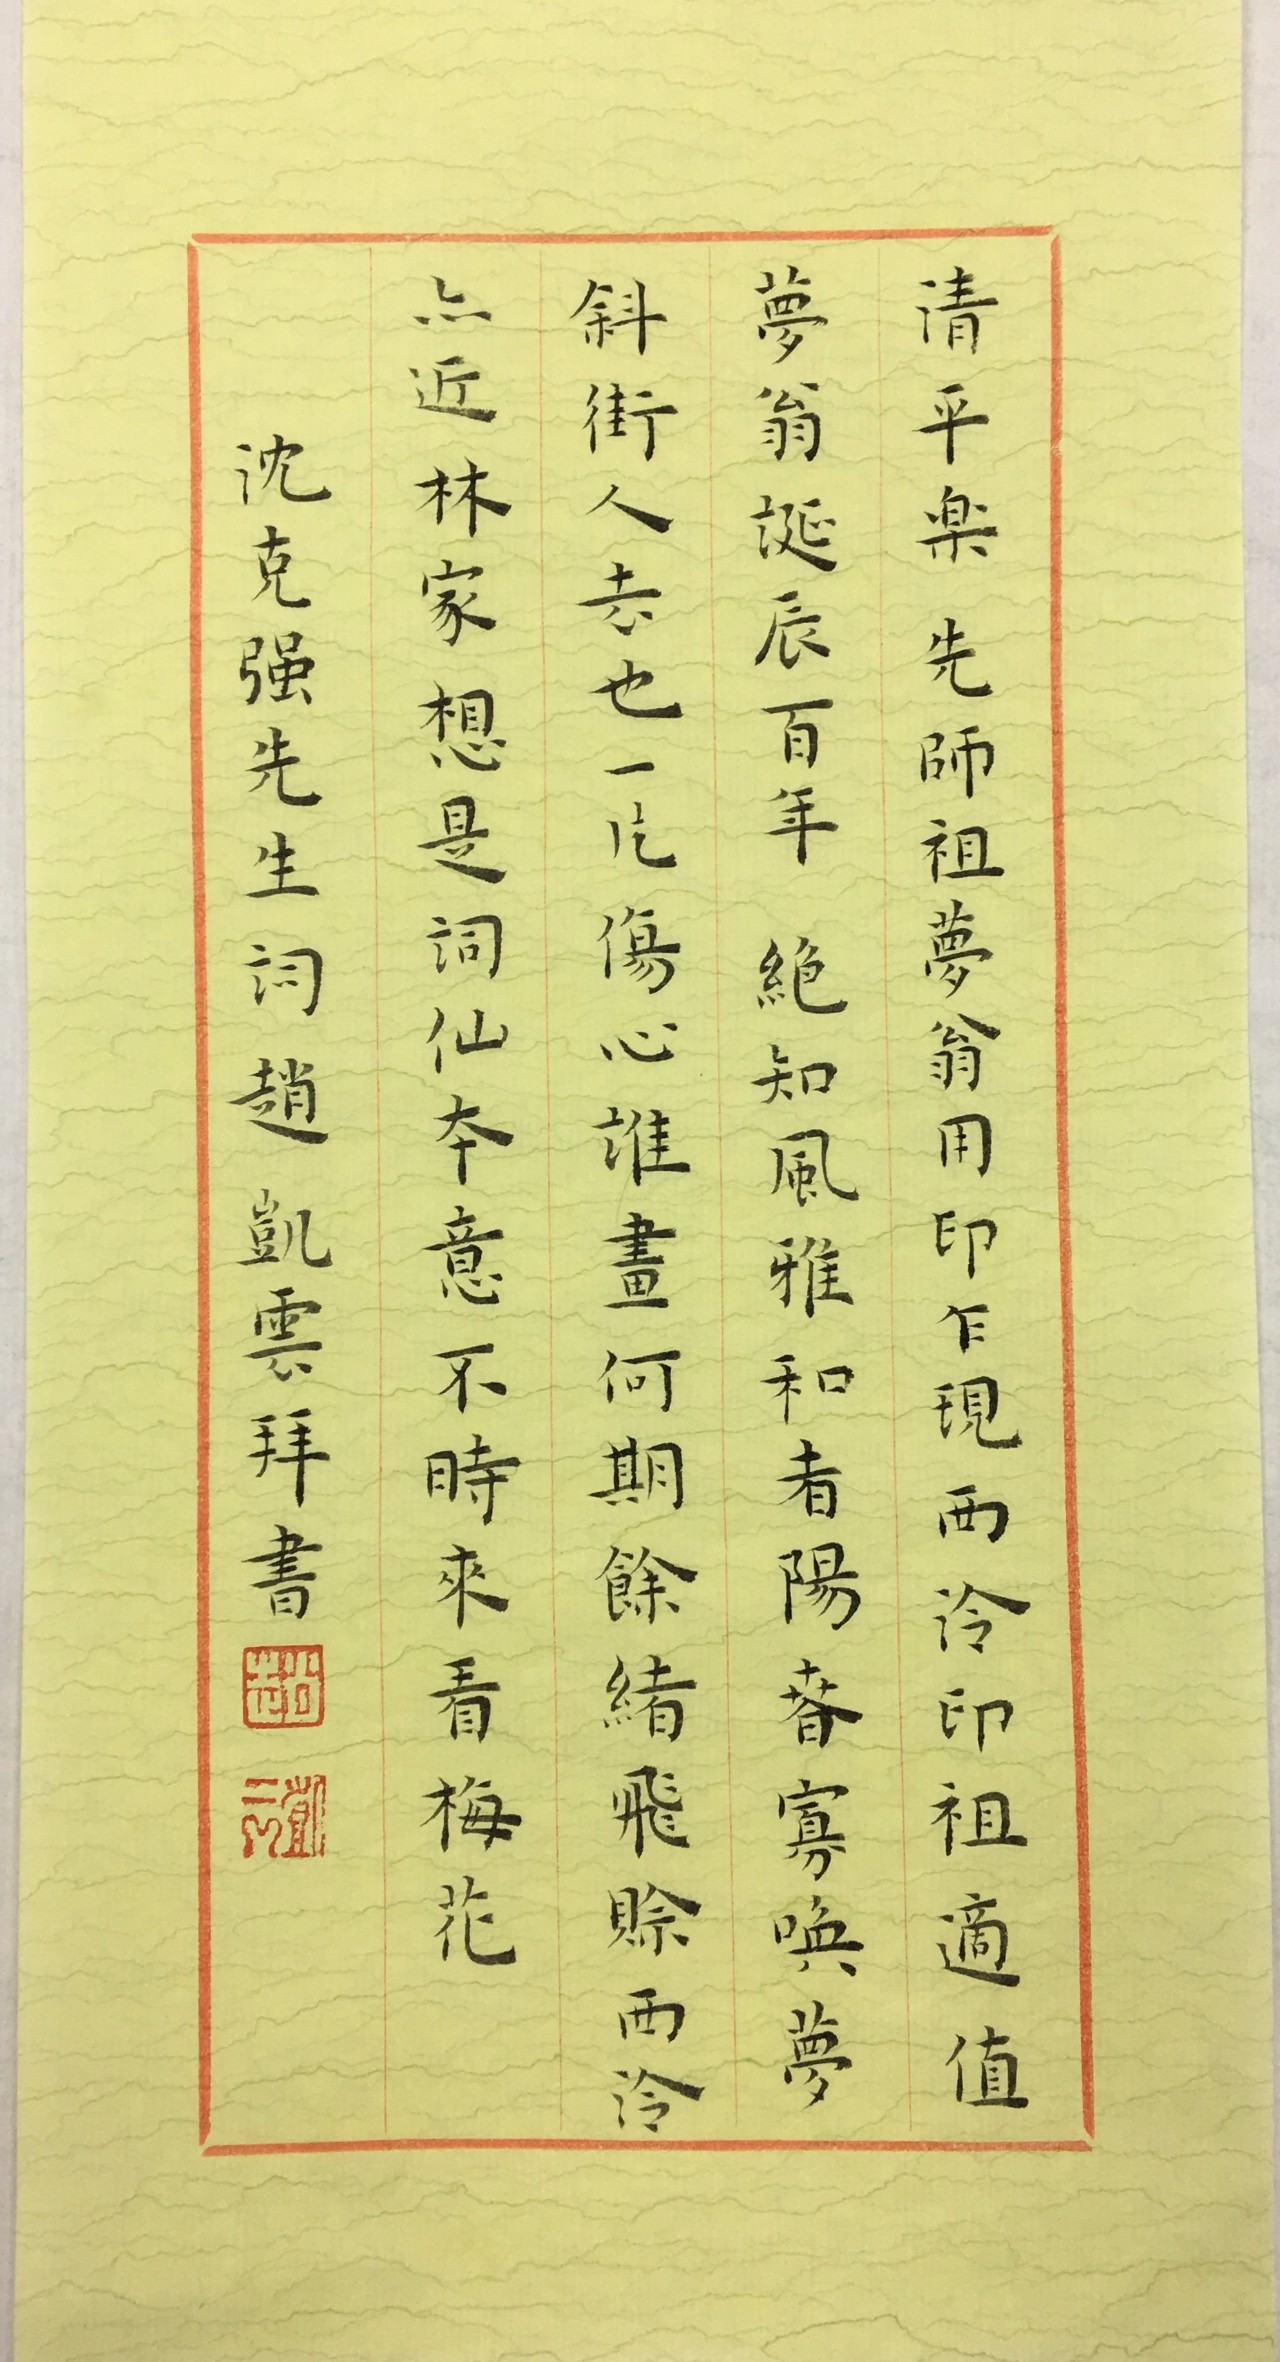 清平樂 先師祖夢翁用印乍現西泠印祖適值
夢翁誕辰百年 絕知風雅和者陽春寡喚夢
斜街人去也一片傷心誰畫何期餘緒飛賒西泠
亦近林家想是詞仙本意不時來看梅花
沈克强先生詞趙凱雲拜書
趙
凱雲